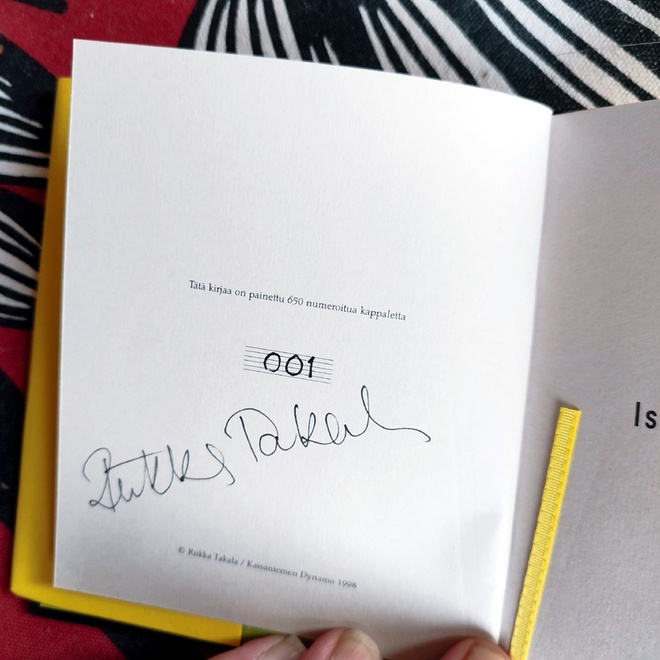 Tätä kirjaa on painettu 650 numeroitua kappaletta
001
Riikka Takala
© Riikka Takala / Kaisaniemen Dynamo 1998
Is